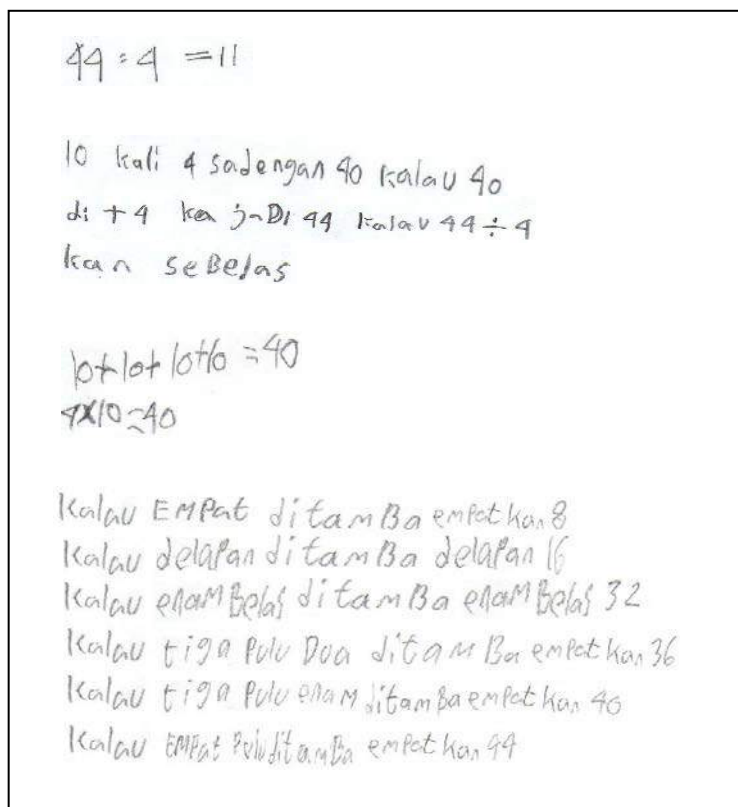 44 : 4 = 11
10 kali 4 sadengan 40 kalau 40
di + 4 kan jaDi 44 kalau 44 ÷ 4
kan seBelas
10+10+10+10 = 40
4x10=40
Kalau EMPat ditamBa empat kan 8
Kalau delapan ditamBa delapan 16
Kalau enamBelas ditamBa enamBelas 32
Kalau tiga Pulu Dua ditamBa empat kan 36
Kalau tiga Pulu enam ditamBa empat kan 40
Kalau EMPat Pulu ditamBa empat kan 44